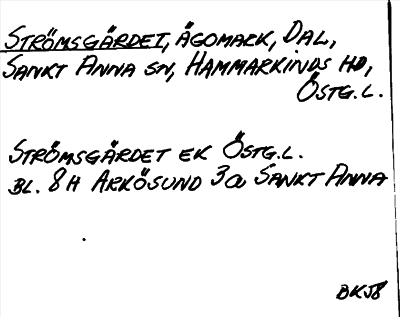 STRÖMSGÅRDET, ÄGOMARK, DAL,
SANKT ANNA SN, HAMMARKINDS HD,
ÖSTG.L.
STRÖMSGÅRDET EK ÖSTG.L.
BL. 8H ARKÖSUND 3a SANKT ANNA
BKJ8